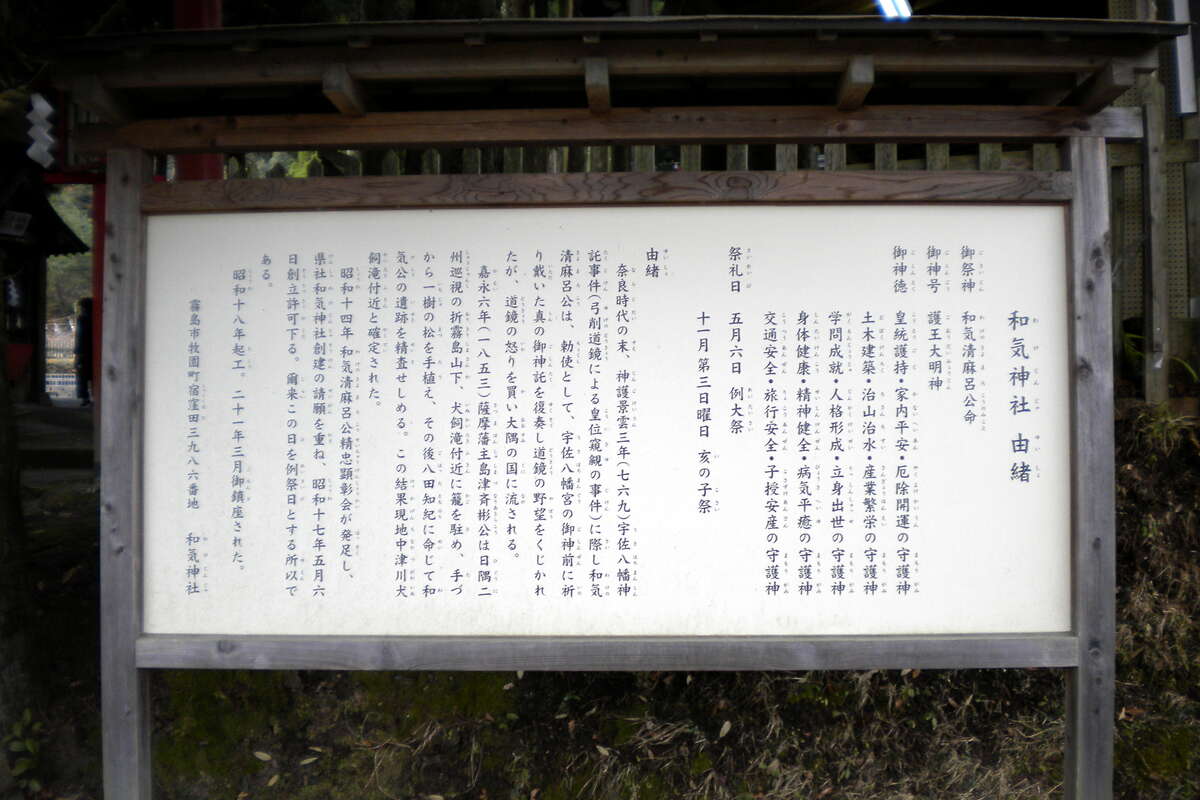 和気神社 由緒
御祭神 和気清麻呂公命
御神号 護王大明神
御神徳 皇統護持・家内平安・厄除開運の守護神
土木建築・治山治水・産業繁栄の守護神
学問成就・人格形成・立身出世の守護神
身体健康・精神健全・病気平癒の守護神
交通安全・旅行安全・子授安産の守護神
祭礼日 五月六日 例大祭
十一月第三日曜日 亥の子祭
由緒
奈良時代の末、神護景雲三年(七六九)宇佐八幡神
託事件(弓削道鏡による皇位窺観の事件)に際し和気
清麻呂公は、勅使として、宇佐八幡宮の御神前に祈
り戴いた真の御神託を復奏し道鏡の野望をくじかれ
たが、道鏡の怒りを買い大隅の国に流される。
嘉永六年(一八五三)薩摩藩主島津斉彬公は日隅二
州巡視の折霧島山下、犬飼滝付近に籠を駐め、手づ
から一樹の松を手植え、その後八田知紀に命じて和
気公の遺跡を精査せしめる。この結果現地中津川犬
飼滝付近と確定された。
昭和十四年 和気清麻呂公精忠顕彰会が発足し、
県社和気神社創建の請願を重ね、昭和十七年五月六
日創立許可下る。爾来この日を例祭日とする所以で
ある。
昭和十八年起工。二十一年三月御鎮座された。
霧島市牧園町宿窪田三九八六番地 和気神社